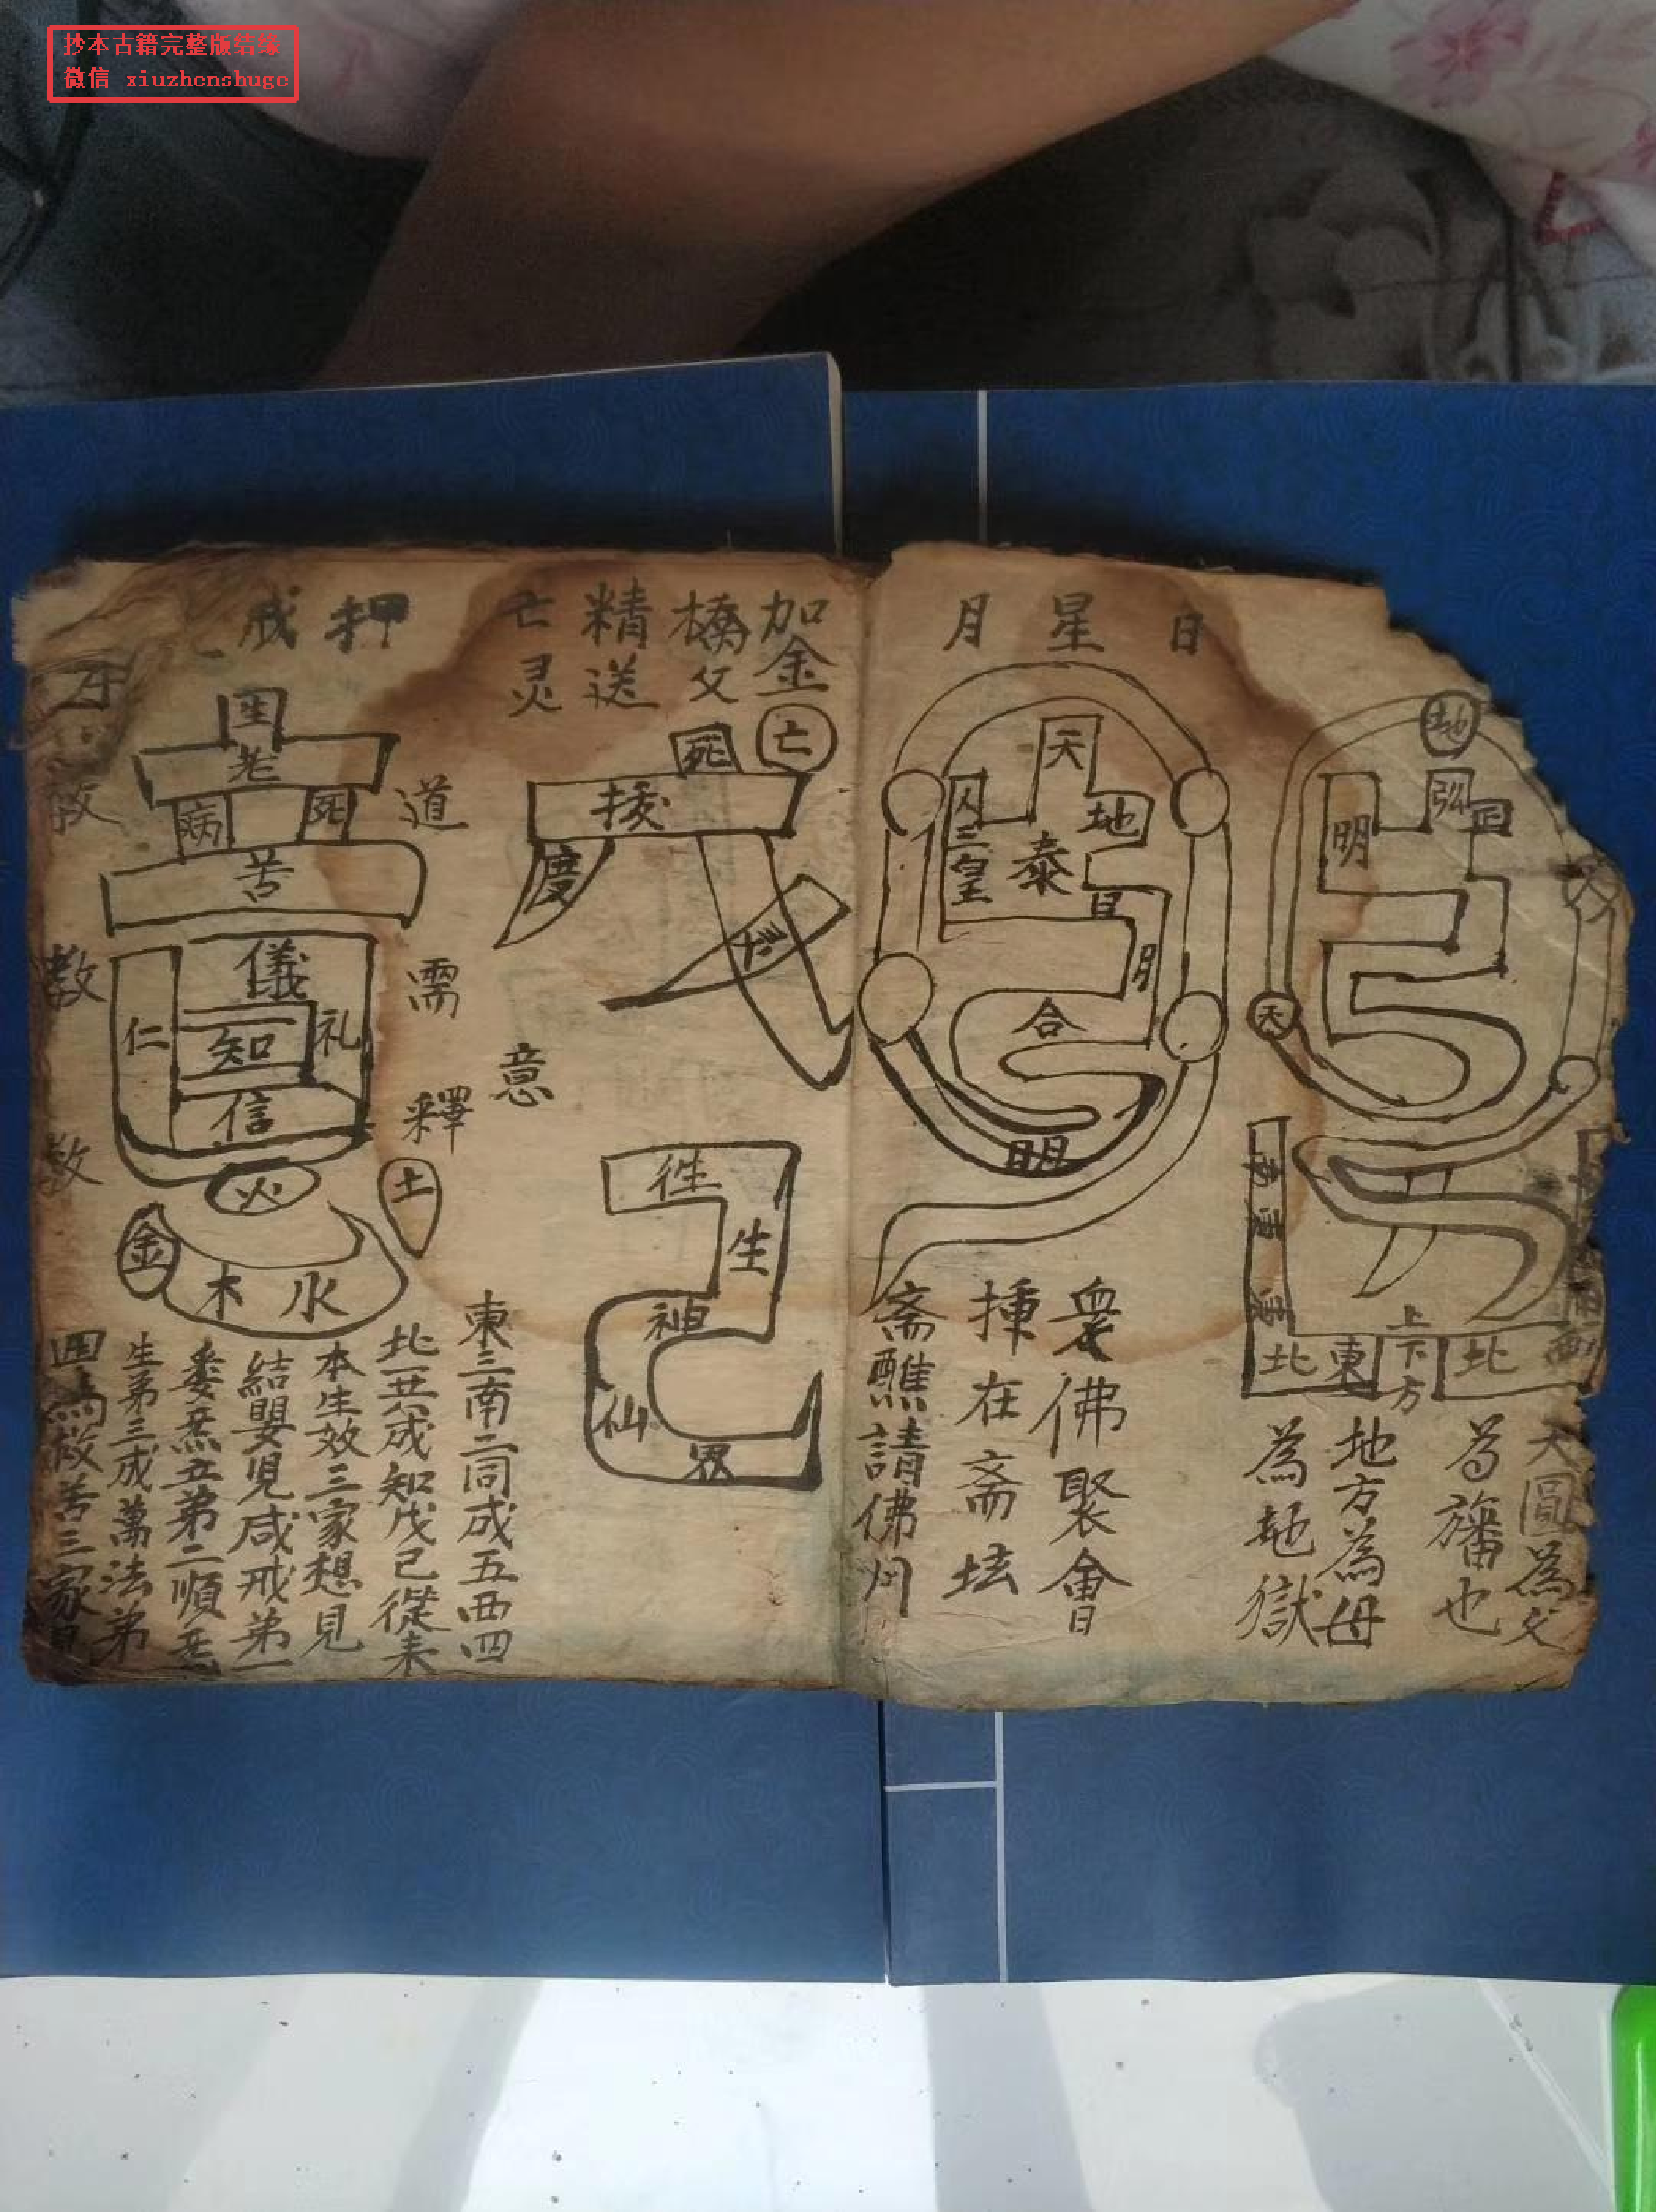 抄本古籍完整版结缘
微信 xiuzhenshuge
日
星
月
地
弘
正
明
天
上下方
北
東
北
天圓為父
為旛也
地方為母
為地獄
天
地
人
三皇
泰
日
月
合
明
眾佛聚會
揰在斋坛
斋醮請佛用
加金
橋父
精送
亡灵
亡
死
度
徃
生
神
仙
界
意
押
戒
生
老
病
死
苦
道
需
釋
教
教
儀
仁
知
礼
信
火
土
金
木
水
東三南二同成五西四
北一共成知戊己從来
本生效三家想見
結嬰児咸戒弟一
委炁立弟二順炁
生弟三成萬法弟
四為救苦三家